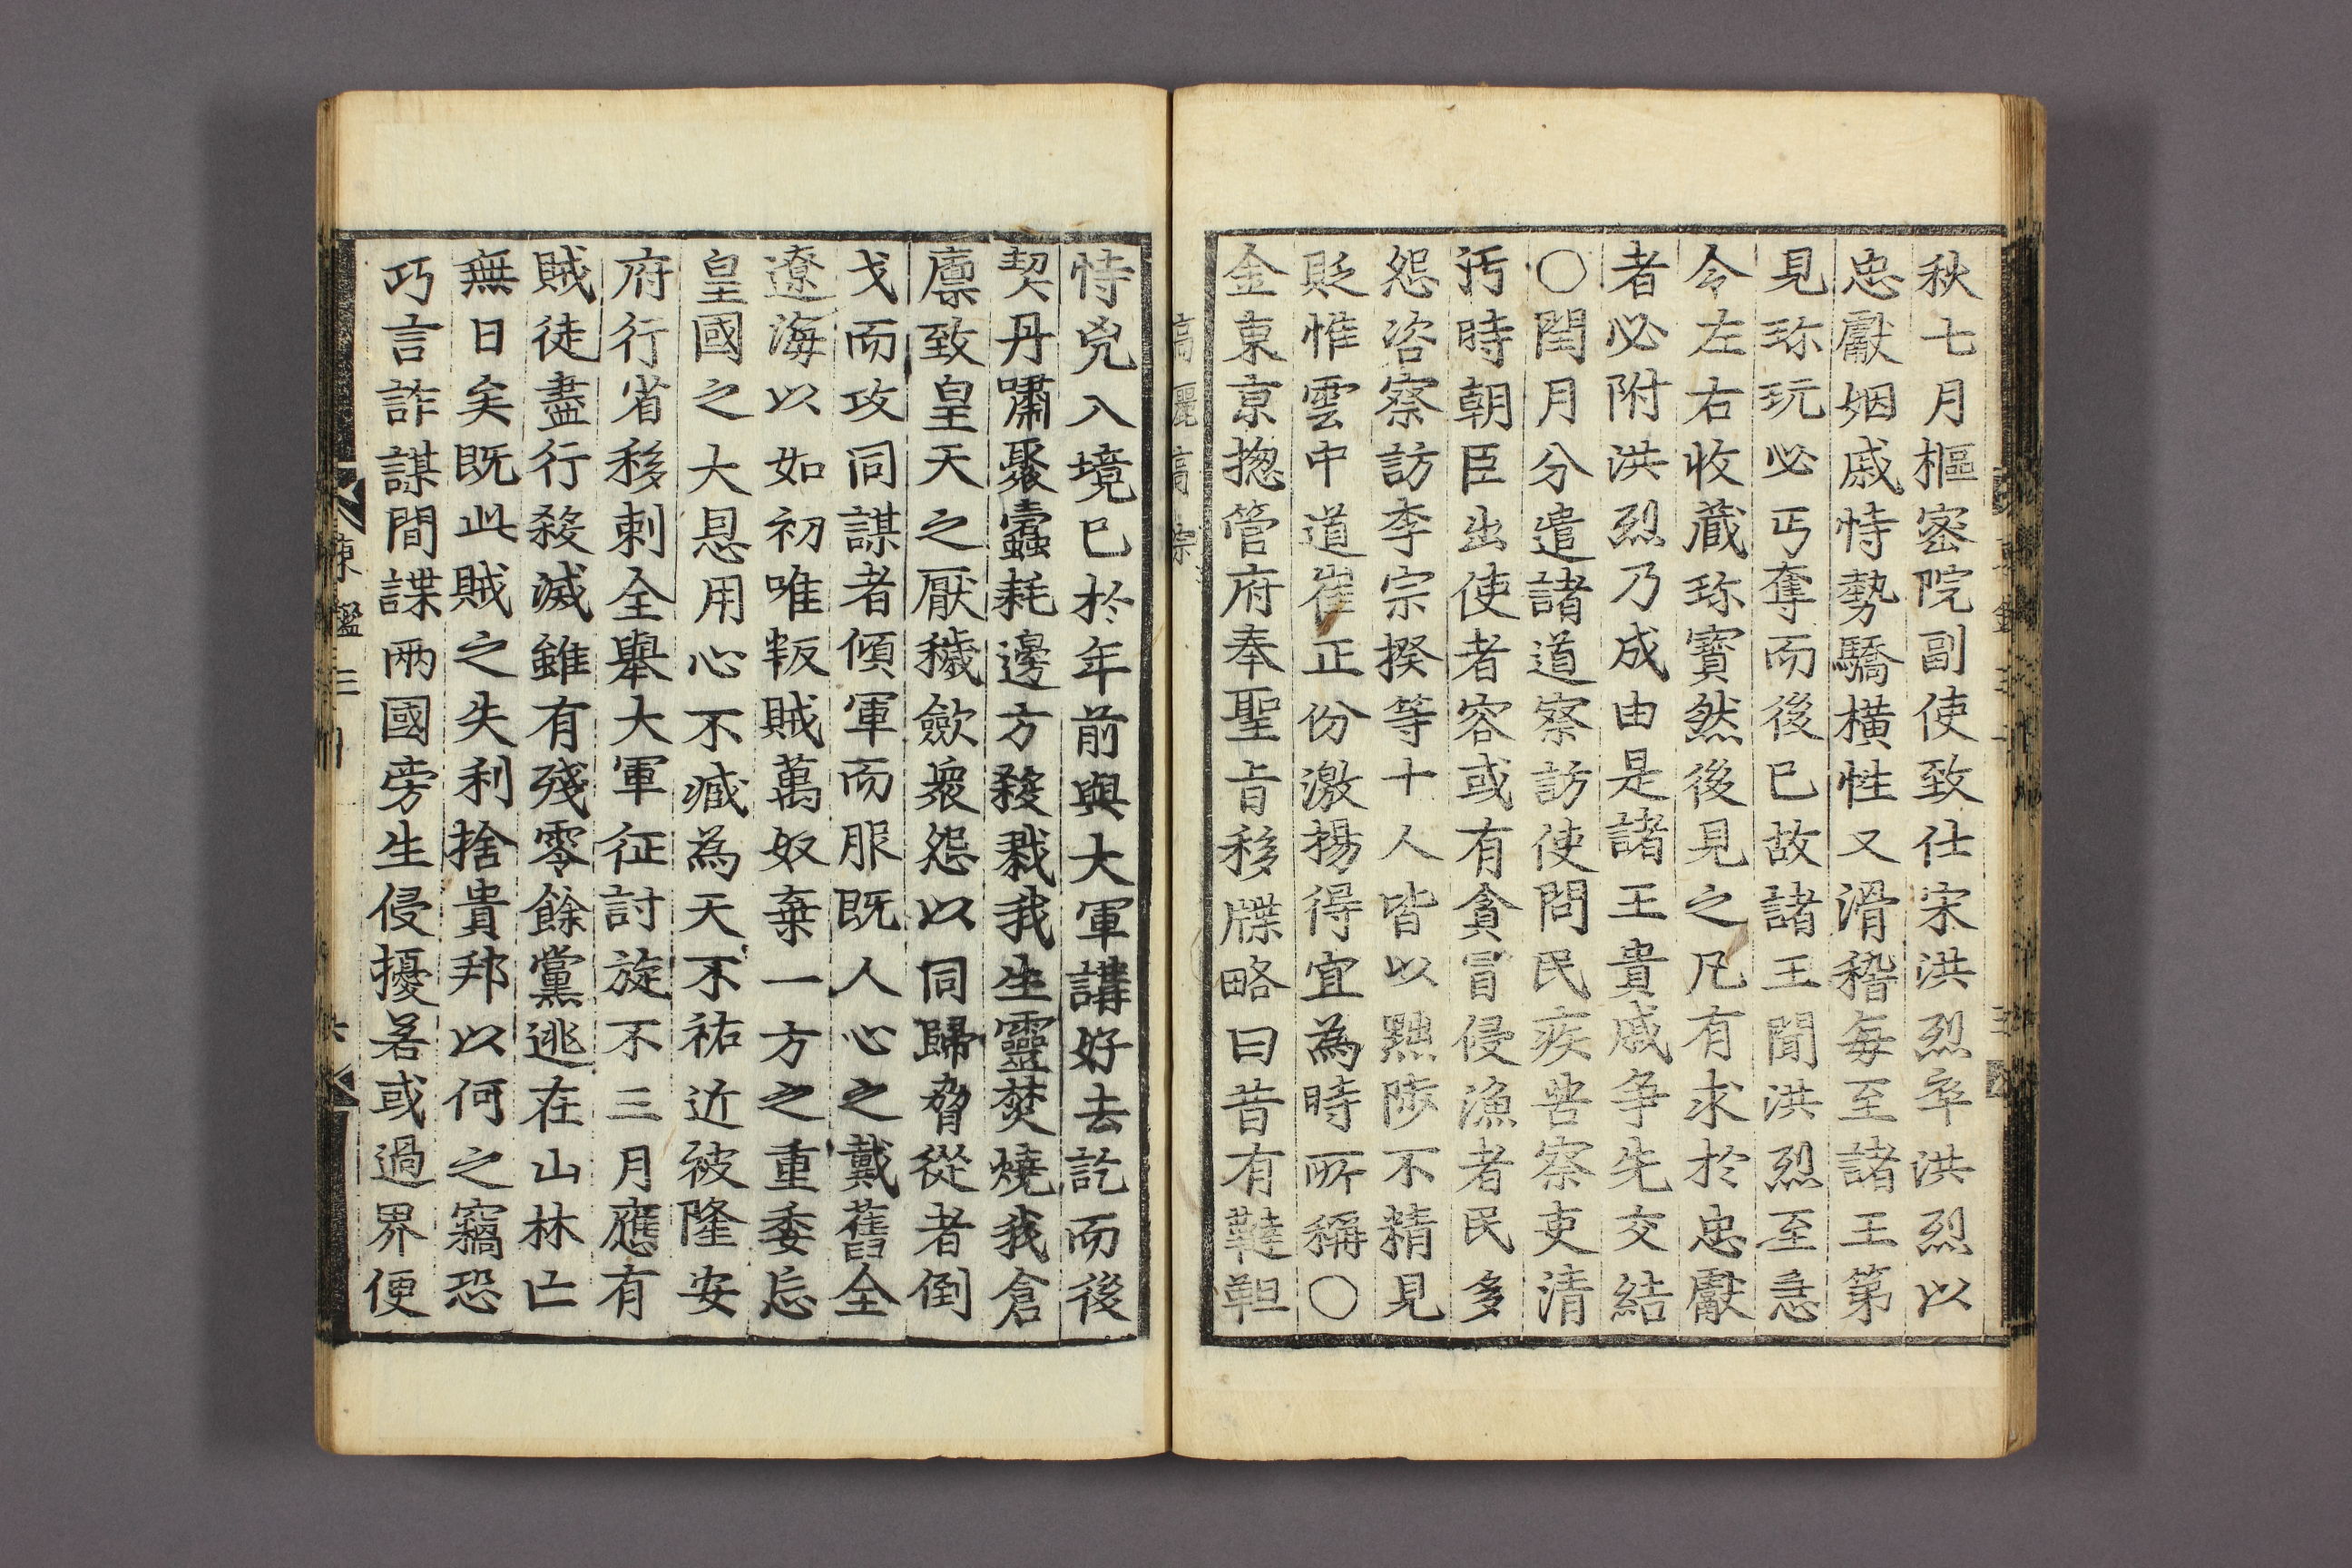 秋七月樞密院副使致仕宋洪烈卒洪烈以
忠獻姻戚恃勢驕橫性又滑稽每至諸王第
見珎玩必丐奪而後已故諸王聞洪烈至急
令左右收蔵珎寶然後見之凡有求於忠獻
者必附洪烈乃成由是諸王貴戚争先交結
〇閏月分遣諸道察訪使問民疾苦察吏清
汚時朝臣出使者容或有貪冒侵漁者民多
怨咨察訪李宗揆等十人皆以黜陟不精見
貶惟雲中道崔正份激揚得宜為時所稱〇
金東京揔管府奉聖旨移牒略曰昔有韃靼
恃兇入境已於年前與大軍講好去訖而後
契丹嘯聚蠧耗邊方殺戮我生靈焚燒我倉
廪致皇天之厭穢歛衆怨以同歸脅從者倒
戈而攻同謀者傾軍而服既人心之戴舊全
遼海以如初唯叛賊萬奴棄一方之重委忘
皇國之大恩用心不臧為天不祐近被隆安
府行省移剌全舉大軍征討旋不三月應有
賊徒盡行殺滅雖有殘零餘黨逃在山林亡
無日矣既此賊之失利捨貴邦以何之竊恐
巧言詐謀間諜兩國旁生侵擾若或過界便
東鑑三